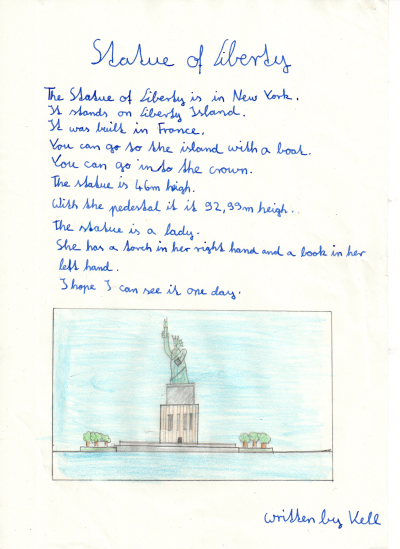 Statue of Liberty
The Statue of Liberty is in New York.
It stands on Liberty Island.
It was built in France.
You can go to the island with a boat.
You can go into the crown.
The statue is 46m heigh.
With the pedestal it it 92,99m heigh.
The statue is a lady.
She has a torch in her right hand and a book in her
left hand.
I hope I can see it one day.
written by Kell